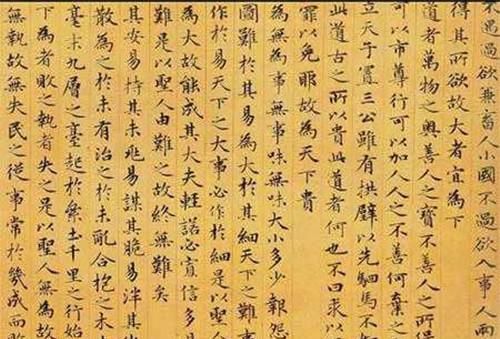 不過欲兼畜人小國不過欲入事人兩
得其所欲故大者宜為下
道者萬物之奧善人之寶不善人之所保
可以市尊行可以加人人之不善何棄之
立天子置三公雖有拱璧以先駟馬不如
道古之所以貴此道者何也不曰求以
罪以免耶故為天下貴
為無為事無事味無味大小多少報怨
圖難於其易為大於其細天下之難事
作於易天下之大事必作於細是以聖人
為大故能成其大夫輕諾必寡信多易
難是以聖人由難之故終無難矣
其安易持其未兆易謀其脆易泮其微
散為之於未有治之於未亂合抱之木
毫末九層之臺起於累土千里之行始
下為者敗之執者失之是以聖人無為故
無執故無失民之從事常於幾成而敗